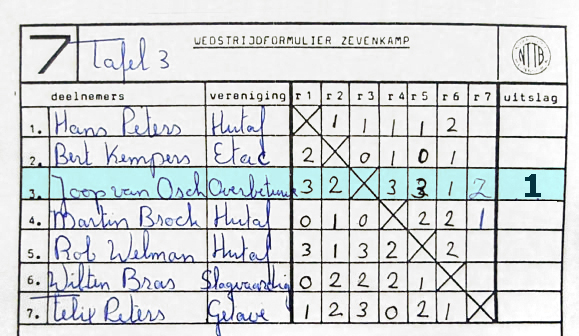 7 Tafel 3 WEDSTRIJDFORMULIER ZEVENKAMP NTTB
deelnemers vereniging r1 r2 r3 r4 r5 r6 r7 uitslag
1. Hans Peters Hutaf 1 1 1 1 2
2. Bert Kempers Etac 2 0 1 0 1
3. Joop van Osch Overbetuwe 3 2 3 3 1 2 1
4. Martin Broch Hutaf 0 1 0 2 2 1
5. Rob Welman Hutaf 3 1 3 2 2
6. Wilten Bras Slagvaardig 0 2 2 2 1
7. Felix Peters Gelave 1 2 3 0 2 1